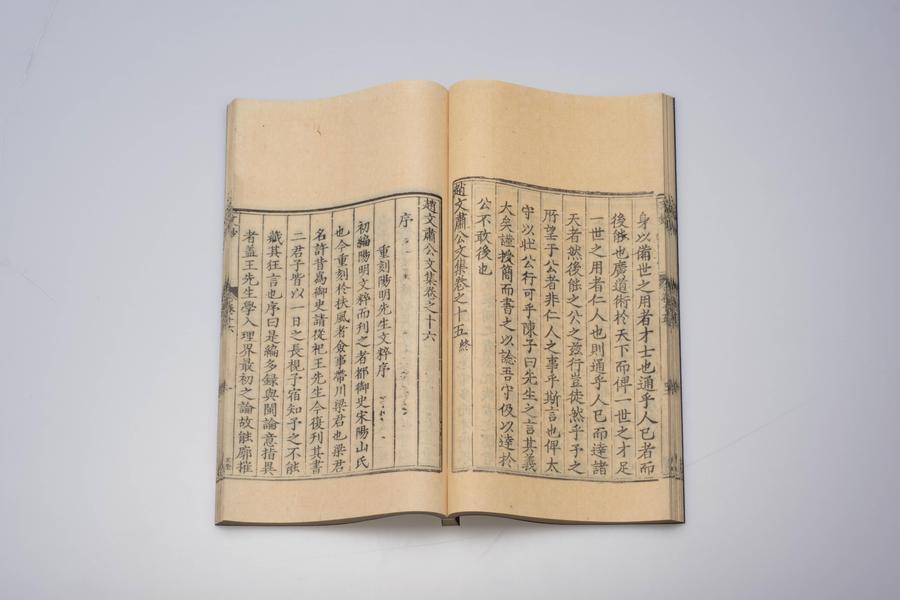 身以備世之用者才士也通乎人已者而
後能也廣道術於天下而俾一世之才足
一世之用者仁人也則通乎人已而達諸
天者然後能之公之茲行豈徒然乎予之
所望于公者非仁人之事乎斯言也俾太
守以壯公行可乎陳子曰先生之言其義
大矣謹授簡而書之以諗吾守伋以達於
公不敢後也
趙文肅公文集卷之十五終
趙文肅公文集卷之十六
序
重刻陽明先生文粹序
初編陽明文粹而刊之者都御史宋陽山氏
也今重刻於扶風者僉事帶川梁君也梁君
名許昔爲御史請從祀王先生今復刊其書
二君子皆以一日之長視予宿知予之不能
藏其狂言也序曰是編多錄與閩論意指異
者蓋王先生學入理界最初之論故能廓摧
卷十六